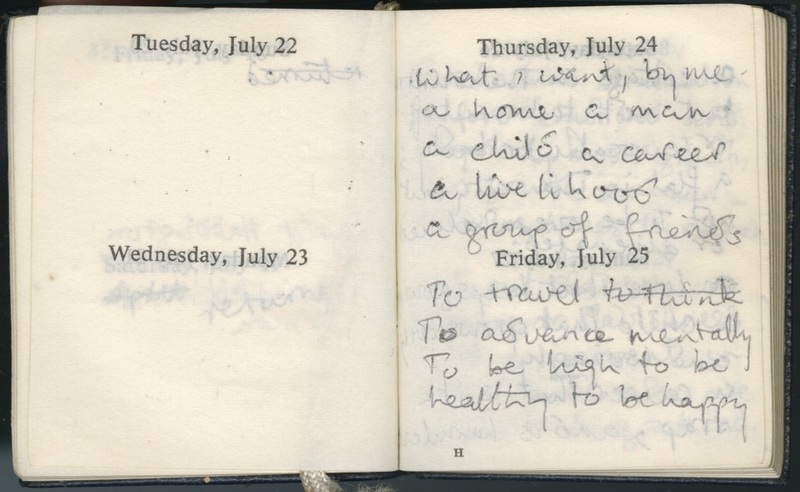 Tuesday, July 22
Wednesday, July 23
Thursday, July 24
What I want, by me.
a home a man
a child a career
a livelihood
a group of friends
Friday, July 25
To travel to think
To advance mentally
To be high to be
healthy to be happy
H